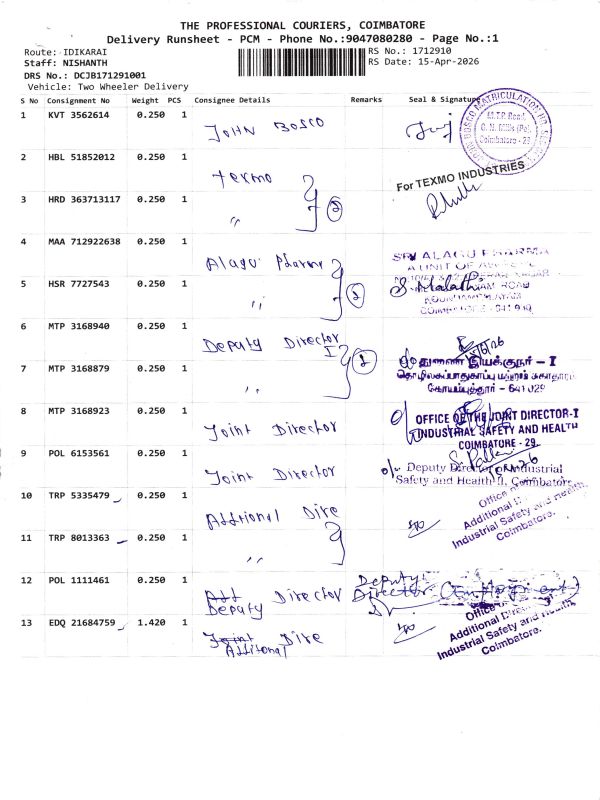 THE PROFESSIONAL COURIERS, COIMBATORE
Delivery Runsheet - PCM - Phone No.:9047080280 - Page No.:1
Route: IDIKARAI
RS No.: 1712910
Staff: NISHANTH
RS Date: 15-Apr-2026
DRS No.: DCJB171291001
Vehicle: Two Wheeler Delivery
S No Consignment No Weight PCS Consignee Details Remarks Seal & Signature
1 KVT 3562614 0.250 1 JOHN BOSCO
JOHN BOSCO MATRICULATION
M.T.P. Road,
G. N. Mills (Po),
Coimbatore - 29
2 HBL 51852012 0.250 1 Texmo
For TEXMO INDUSTRIES
3 HRD 363713117 0.250 1 〃 2
4 MAA 712922638 0.250 1 Alagu Pharma
SRI ALAGU PHARMA
A UNIT OF
5 HSR 7727543 0.250 1 〃 2
S. Malathi
ROAD
6 MTP 3168940 0.250 1 Deputy Director I
துணை இயக்குநர் - I
7 MTP 3168879 0.250 1 〃 2
தொழிலகப்பாதுகாப்பு மற்றும் சுகாதாரம்
கோயம்புத்தூர் - 641 029
8 MTP 3168923 0.250 1 Joint Director
OFFICE OF THE JOINT DIRECTOR-I
INDUSTRIAL SAFETY AND HEALTH
COIMBATORE - 29.
9 POL 6153561 0.250 1 Joint Director
Deputy Director of Industrial
Safety and Health-II, Coimbatore
10 TRP 5335479 0.250 1 Additional Dire
11 TRP 8013363 0.250 1 〃
Office of
Additional
Industrial Safety and Health,
Coimbatore.
12 POL 1111461 0.250 1 Add Director
Deputy
Deputy
Director
13 EDQ 21684759 1.420 1 Joint Dire
Additional
Office of
Additional
Industrial Safety and Health,
Coimbatore.